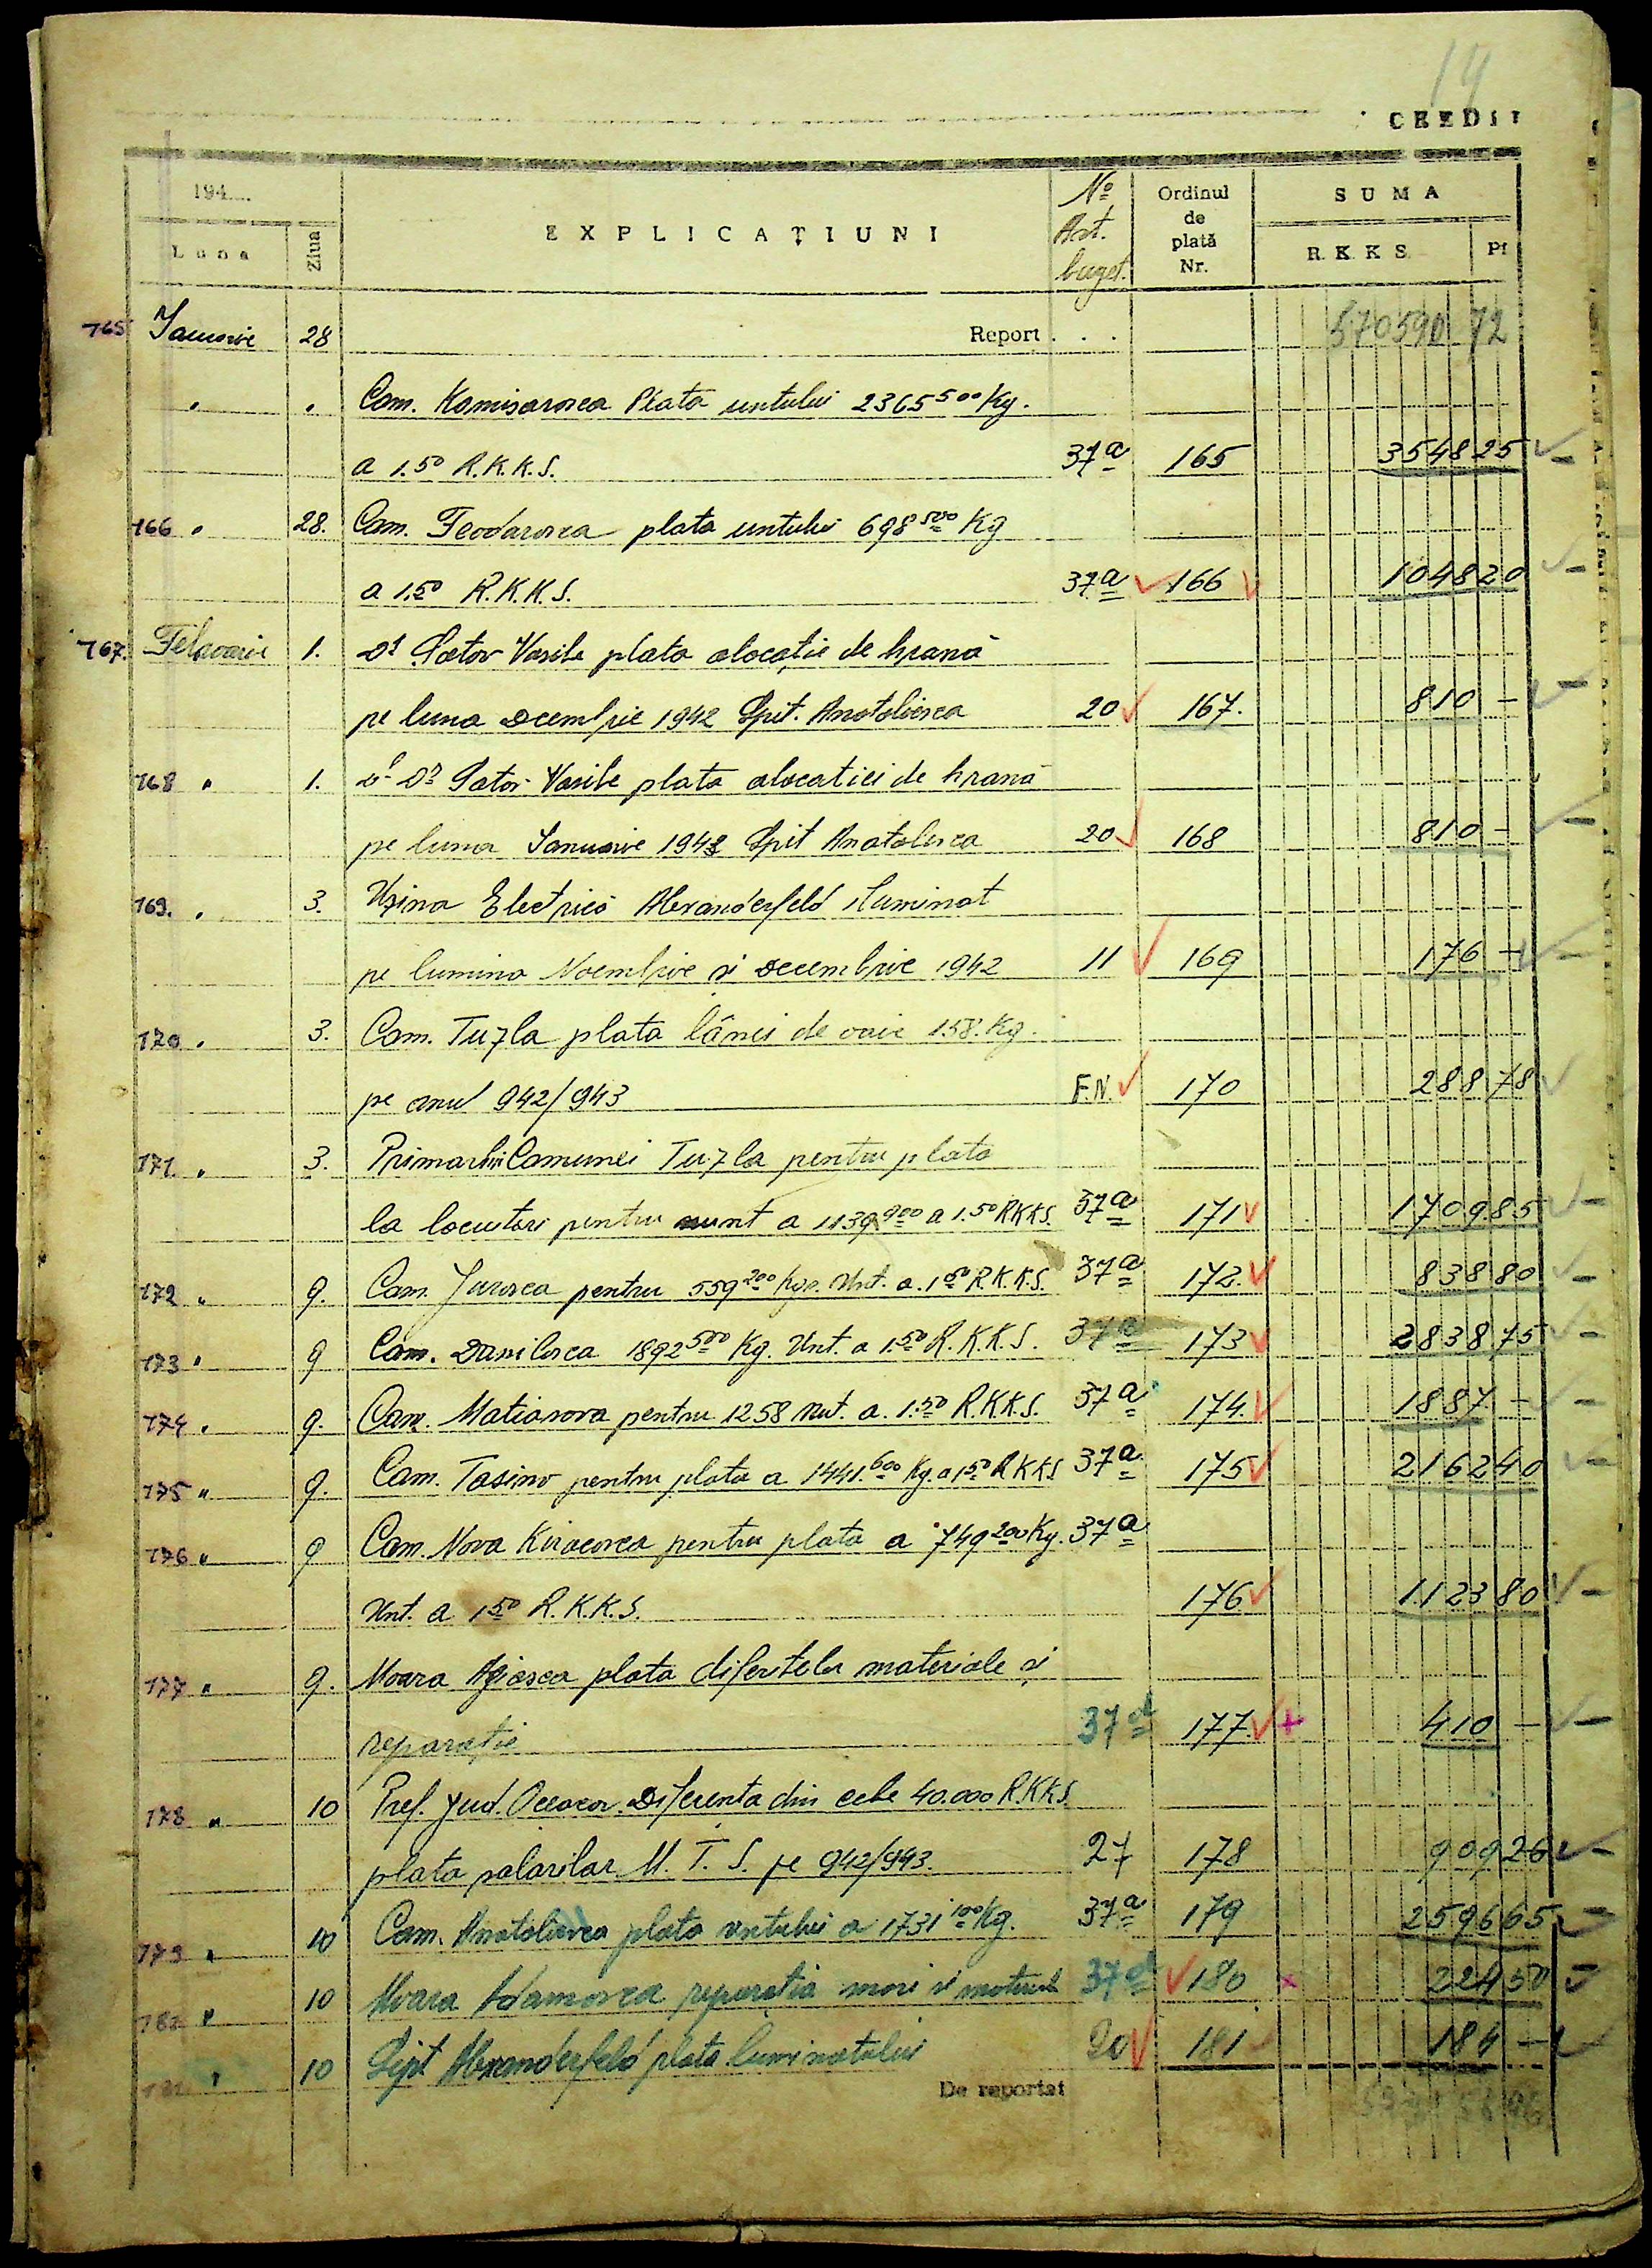 14
CREDIT
194....
Luna
Ziua
EXPLICAȚIUNI
No Art. buget.
Ordinul de plată Nr.
SUMA
R.K.K.S.
Pf
165 Ianuarie 28 Report . . . 570590 72
" " Com. Komisarovca Plata untului 2365 500 Kg.
a 1.50 R.K.K.S. 37a 165 3548 25
166 " 28. Com. Feodarovca plata untului 698 800 Kg
a 1.50 R.K.K.S. 37a 166 1048 20
167. Februarie 1. Dl Vasile plata alocație de hrană
pe luna Decembrie 1942 Spit. Anatolievca 20 167. 810 -
168 " 1. Dl Dr Vasile plata alocatiei de hrană
pe luna Ianuarie 1943 Spit Anatolievca 20 168 810 -
169. " 3. Uzina Electrică Alexanderfeld iluminat
pe lumina Noembrie și Decembrie 1942 11 169 176 -
170 " 3. Com. Tuzla plata lânei de oaie 158. Kg.
pe anul 942/943 F.N. 170 288 78
171. " 3. Primariei Comunei Tuzla pentru plata
la locuitori pentru unt a 1139 900 a 1.50 RKKS. 37a 171 1709 85
172 " 9. Com. Jurovca pentru 559 200 Kgr. Unt. a. 1 50 R.K.K.S. 37a 172. 838 80
173 " 9 Com. Danilovca 1892 500 Kg. Unt. a 1.50 R.K.K.S. 37a 173 2838 75
174 " 9. Com. Matiasova pentru 1258 Unt. a. 1.50 R.K.K.S. 37a 174. 1887 -
175 " 9. Com. Tasino pentru plata a 1441.600 Kg. a 1 50 RKKS 37a 175 2162 40
176 " 9 Com. Nova Kiraevca pentru plata a 749 200 Kg. 37a
Unt. a 1 50 R.K.K.S. 176 1123 80
177 " 9. Moara plata diferitelor materiale și
reparație 37d 177. + 410 -
178 " 10 Pref. Jud. Oceacov. Diferenta din cele 40.000 R.K.K.S.
plata salarilor M.T.S. pe 942/943. 27 178 909 26
179 " 10 Com. Anatolievca plata untului a 1731 100 Kg. 37a 179 2596 65
" 10 Moara Adamovca reparatia morii si motorul 37d 180 224 50
" 10 Spit Alexanderfeld plata luminatului 20 181 184 -
De reportat